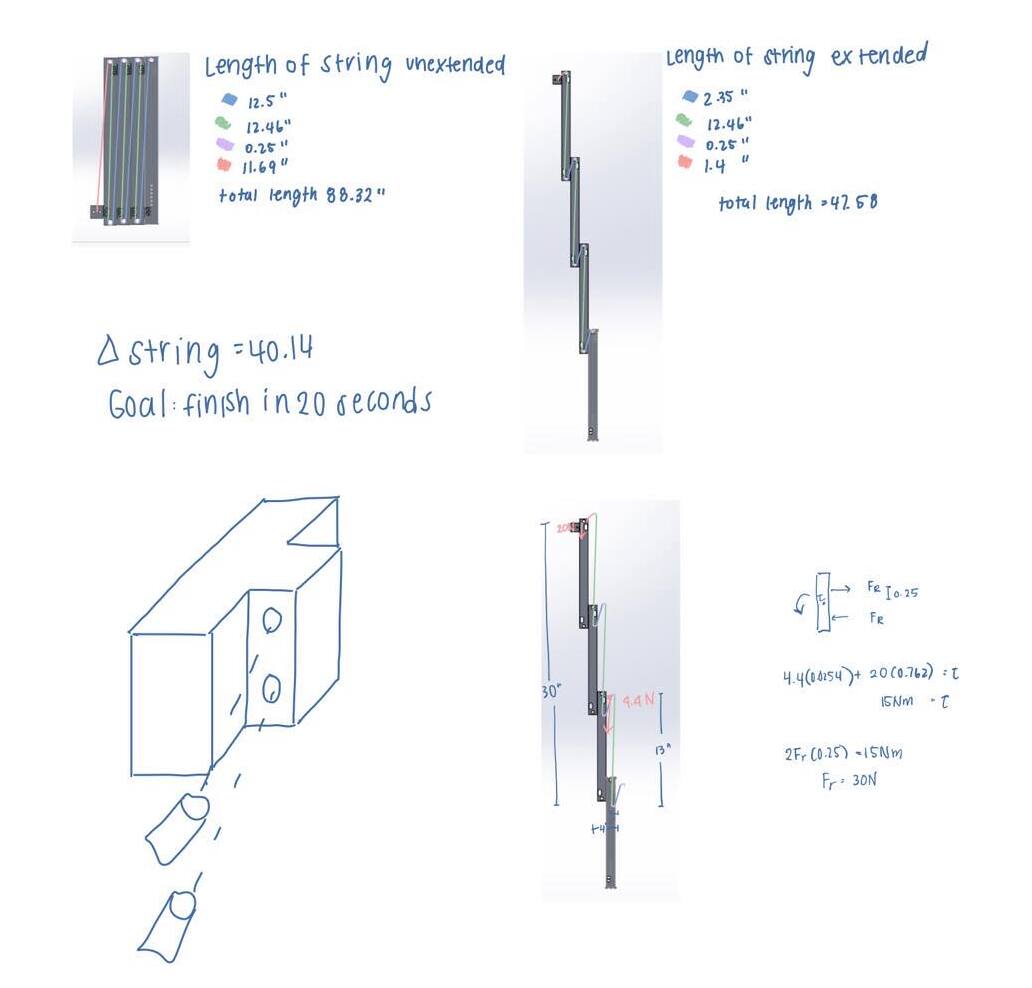 Length of string unextended
12.5"
12.46"
0.25"
11.69"
total length 88.32"
Length of string extended
2.35"
12.46"
0.25"
1.4"
total length = 47.58
Δ string = 40.14
Goal: finish in 20 seconds
30"
4.4N
13"
FR
0.25
FR
4.4(0.0254) + 20(0.762) = τ
15Nm = τ
2Fr(0.25) = 15Nm
Fr = 30N